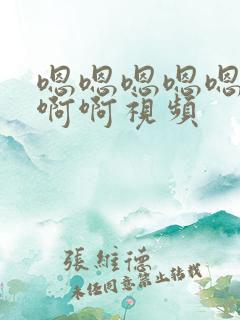 嗯嗯嗯嗯嗯
啊啊視頻
張維德
未經同意禁止轉載